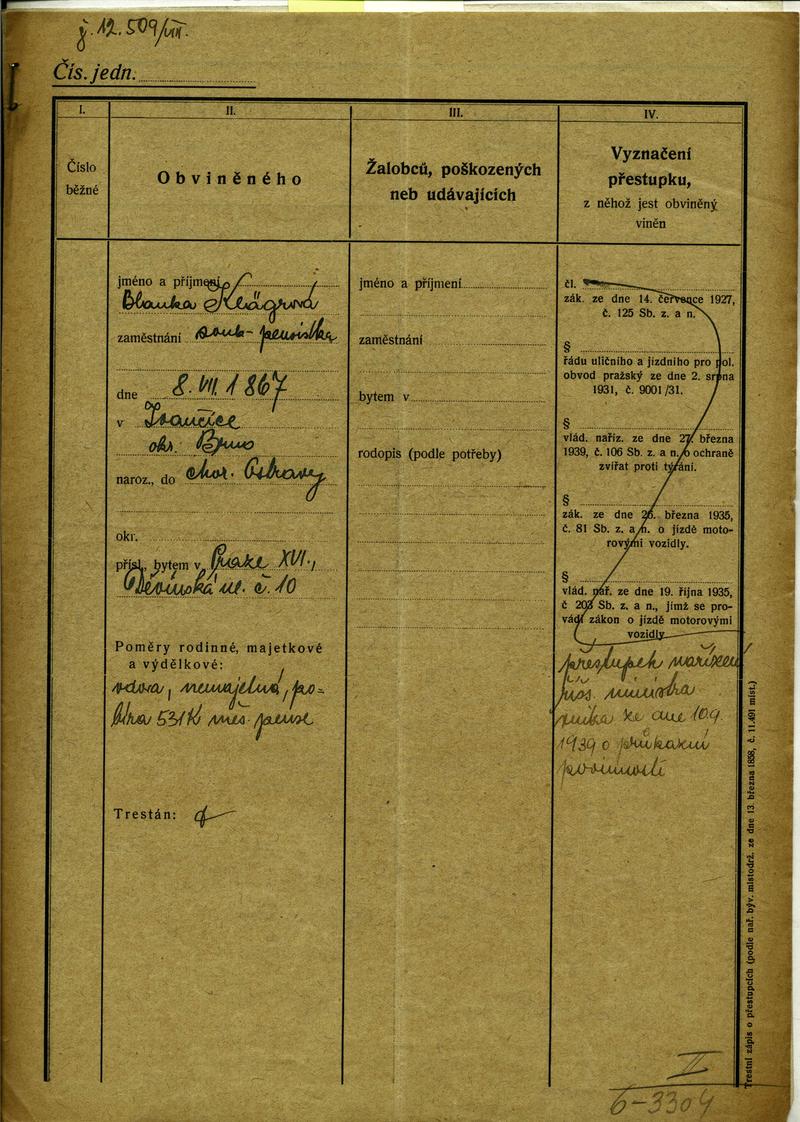 j. 12.509/VIII.
Čís. jedn.
I.
Číslo
běžné
II.
Obviněného
III.
Žalobců, poškozených
neb udávajících
IV.
Vyznačení
přestupku,
z něhož jest obviněný
viněn
jméno a příjmení
Blanka Klägrová
zaměstnání souk-pensistka
dne 8. VII. 1867
v Ivančice
okr. Brno
naroz., do Mor. Ostravy
okr.
přísl., bytem v Praze XVI.,
Děvínská ul. č. 10
Poměry rodinné, majetkové
a výdělkové:
vdova, nemajetná, po-
bírá 531 K měs. pense
Trestán:
jméno a příjmení
zaměstnání
bytem v
rodopis (podle potřeby)
čl.
zák. ze dne 14. července 1927,
č. 125 Sb. z. a n.
§
řádu uličního a jízdního pro pol.
obvod pražský ze dne 2. srpna
1931, č. 9001/31.
§
vlád. naříz. ze dne 27. března
1939, č. 106 Sb. z. a n. o ochraně
zvířat proti týrání.
§
zák. ze dne 26. března 1935,
č. 81 Sb. z. a n. o jízdě moto-
rovými vozidly.
§
vlád. nař. ze dne 19. října 1935,
č 203 Sb. z. a n., jímž se pro-
vádí zákon o jízdě motorovými
vozidly.
přestupek nařízení
říš. ministra
vnitra ze dne 10.9.
1939 o průkazní
povinnosti
Trestní zápis o přestupcích (podle nař. býv. místodrž. ze dne 13. března 1858, č. 11.491 míst.)
II
6-3304